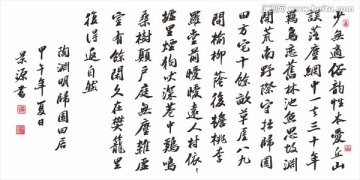 少無適俗韵性本愛丘山
誤落塵網中一去三十年
羈鳥戀舊林池魚思故淵
開荒南野際守拙歸園
田方宅十餘畝草屋八九
間榆柳蔭後檐桃李
羅堂前曖曖遠人村依依
墟里煙狗吠深巷中鷄鳴
桑樹顛戶庭無塵雜虛
室有餘閒久在樊籠里
復得返自然
陶淵明歸園田居
甲午年夏日
景源書